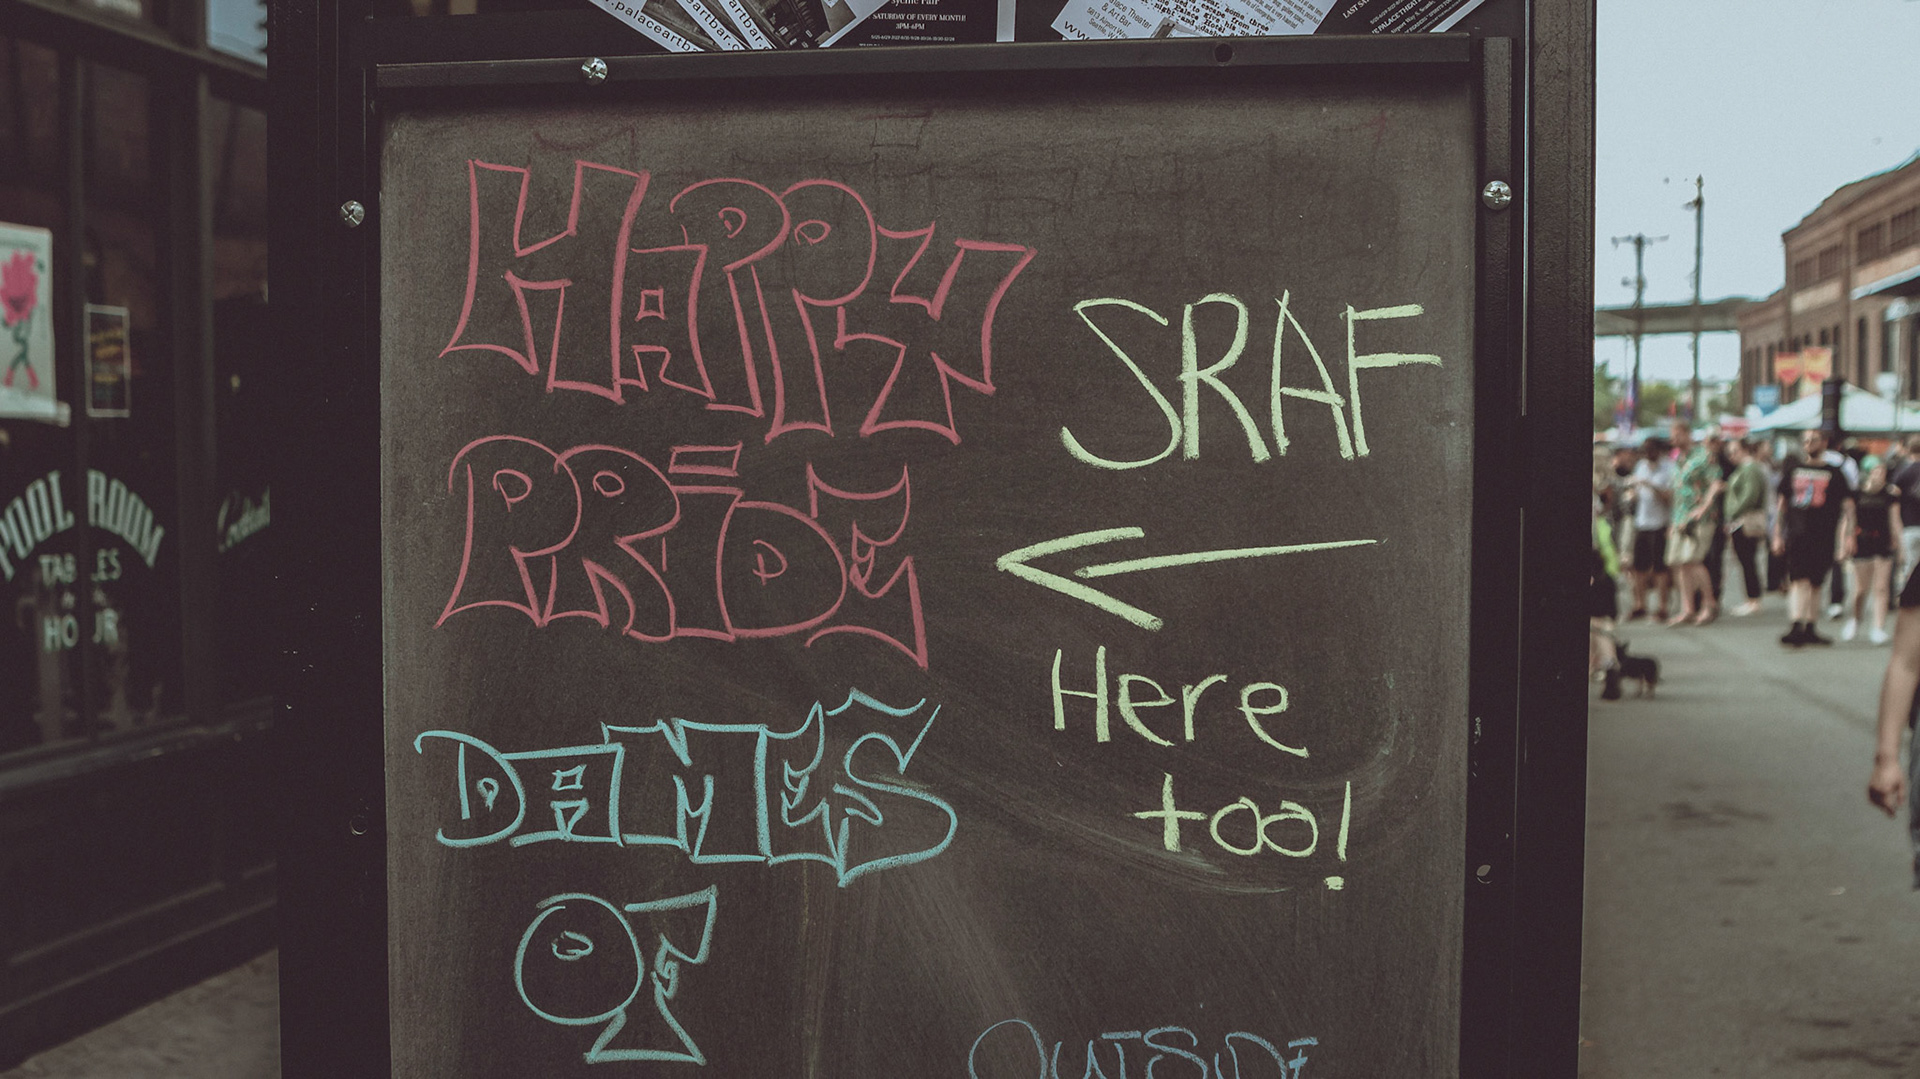 www.palaceartbar.com
Psychic Fair
SATURDAY OF EVERY MONTH!
3PM-6PM
Palace Theater
& Art Bar
5813 Airport Way
HAPPY
PRIDE
DAMES
OF
SRAF
Here
too!
OUTSIDE
POOL ROOM
TABLES
&
HOUR
Cocktails